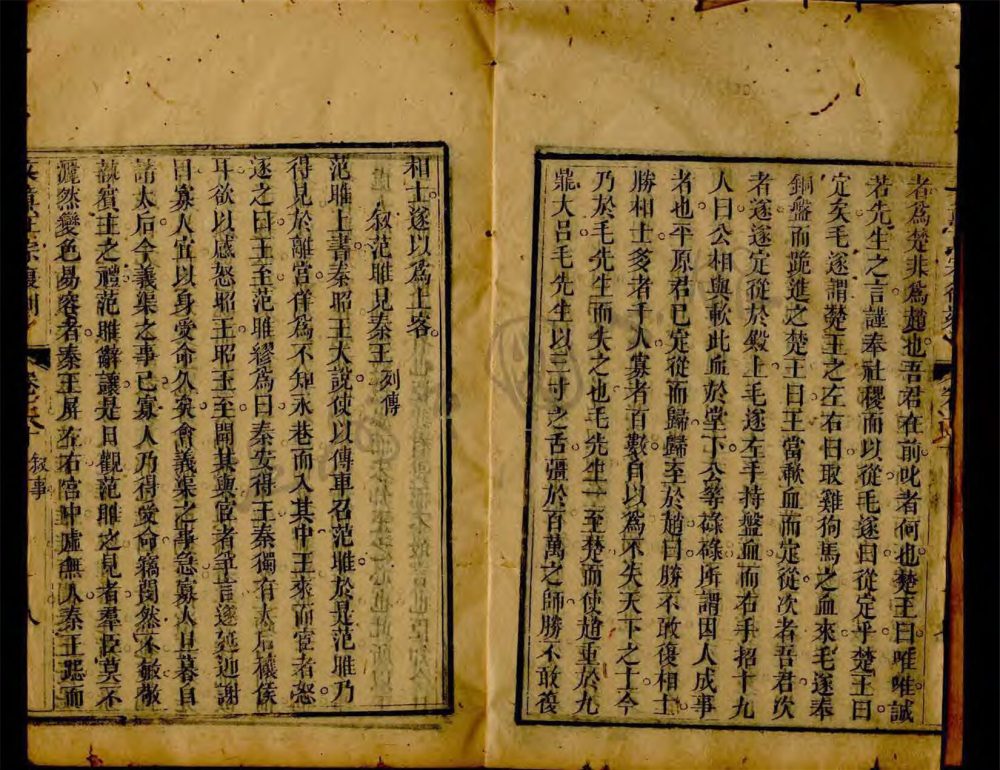 者爲楚非爲趙也吾君在前叱者何也楚王曰唯唯誠
若先生之言謹奉社稷而以從毛遂曰從定乎楚王曰
定矣毛遂謂楚王之左右曰取雞狗馬之血來毛遂奉
銅盤而跪進之楚王曰王當歃血而定從次者吾君次
者遂遂定從於殿上毛遂左手持盤血而右手招十九
人曰公相與歃此血於堂下公等碌碌所謂因人成事
者也平原君已定從而歸歸至於趙曰勝不敢復相士
勝相士多者千人寡者百數自以爲不失天下之士今
乃於毛先生而失之也毛先生一至楚而使趙重於九
鼎大呂毛先生以三寸之舌彊於百萬之師勝不敢復
相士遂以爲上客
叙范雎見秦王 列傳
范雎上書秦昭王大說使以傳車召范雎於是范雎乃
得見於離宮佯爲不知永巷而入其中王來而宦者怒
逐之曰王至范雎繆爲曰秦安得王秦獨有太后穰侯
耳欲以感怒昭王昭王至聞其與宦者爭言遂延迎謝
曰寡人宜以身受命久矣會義渠之事急寡人旦暮自
請太后今義渠之事已寡人乃得受命竊閔然不敏敬
執賓主之禮范雎辭讓是日觀范雎之見者羣臣莫不
灑然變色易容者秦王屏左右宮中虛無人秦王跽而
叙事
八